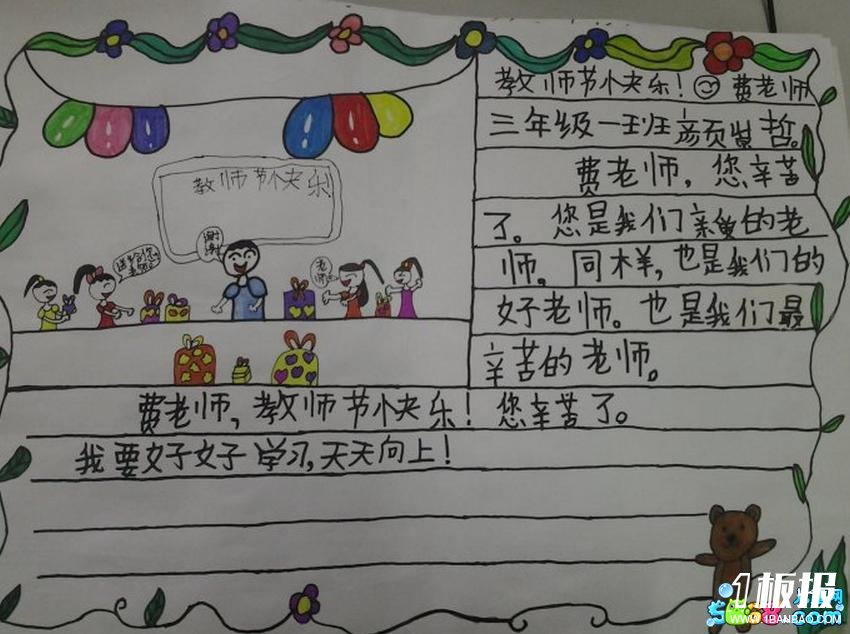 教师节快乐！费老师
三年级一班彦页贤哲。
费老师，您辛苦
了。您是我们亲爱的老
师。同样，也是我们的
好老师。也是我们最
辛苦的老师。
教师节快乐
谢谢
老师
费老师，教师节快乐！您辛苦了。
我要好好学习，天天向上！
1板报
WWW.1BANBAO.COM